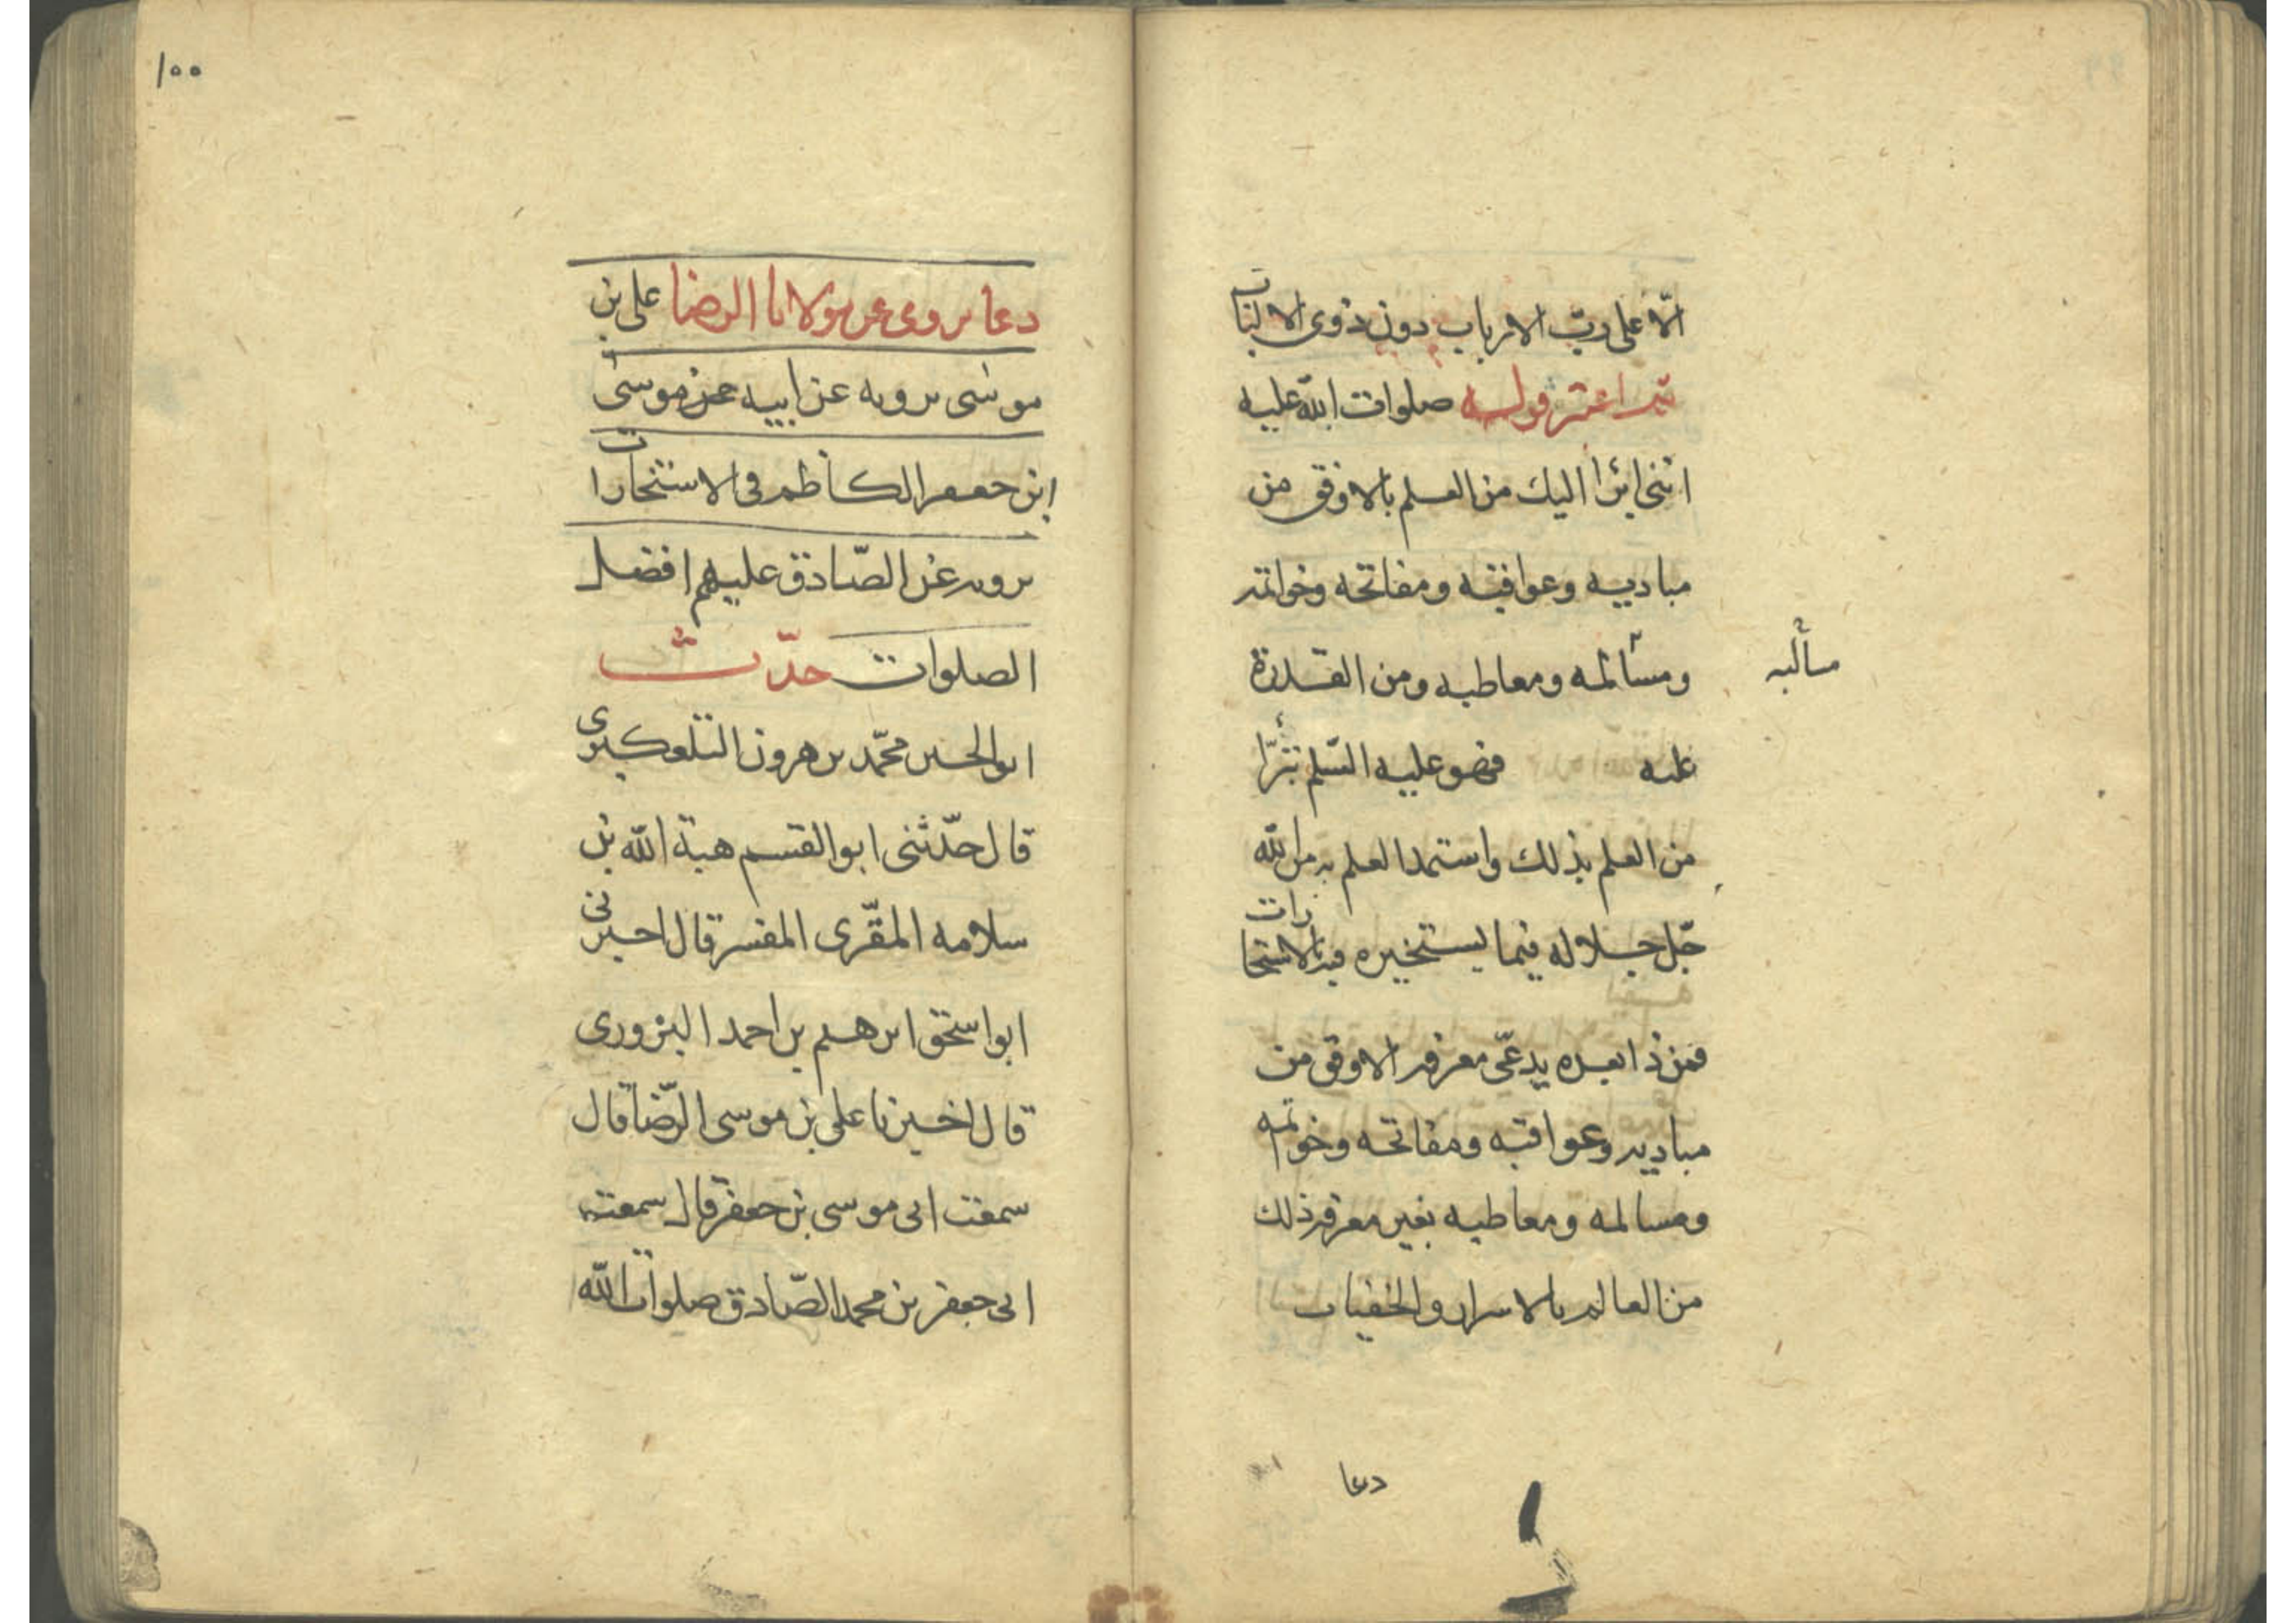 الّا على ربّ الارباب دون ذوى الالباب
ثم اعتبر قوله صلوات الله عليه
اننى ابرأ اليك من العلم بالاوفق من
مباديه وعواقبه ومفاتحه وخواتمه
ومسالمه ومعاطبه ومن القدرة
مسالبه
عليه فهو عليه السّلم تبرّأ
من العلم بذلك واستمد العلم به من الله
جلّ جلاله فيما يستخيره فيه بالاستخارات
فمن ذا بعده يدعّى معرفه الاوفق من
مباديه وعواقبه ومفاتحه وخواتمه
ومسالمه ومعاطبه بغير معرفه ذلك
من العالم بالاسرار والخفيات
دعا
١٠٠
دعا يروى عن مولانا الرضا على بن
موسى يرويه عن ابيه عن موسى
ابن جعفر الكاظم فى الاستخارات
يرويه عن الصّادق عليهم افضل
الصلوات حدّث
ابو الحسين محمّد بن هرون التلعكبرى
قال حدّثنى ابو القسم هبة الله بن
سلامه المقرّى المفسر قال اخبرنى
ابو اسحق ابرهيم بن احمد البزورى
قال اخبرنا على بن موسى الرّضا قال
سمعت ابى موسى بن جعفر قال سمعت
ابى جعفر بن محمد الصّادق صلوات الله